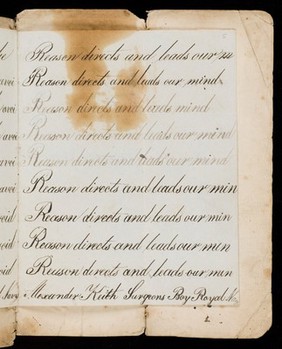 Reason directs and leads our m
Reason directs and leads our mind
Reason directs and lauds mind
Reason directs and leads our mind
Reason directs and leads our mind
Reason directs and leads our min
Reason directs and leads our min
Reason directs and leads our min
Reason directs and leads our min
Alexander Keith Surgeons Boy Royal